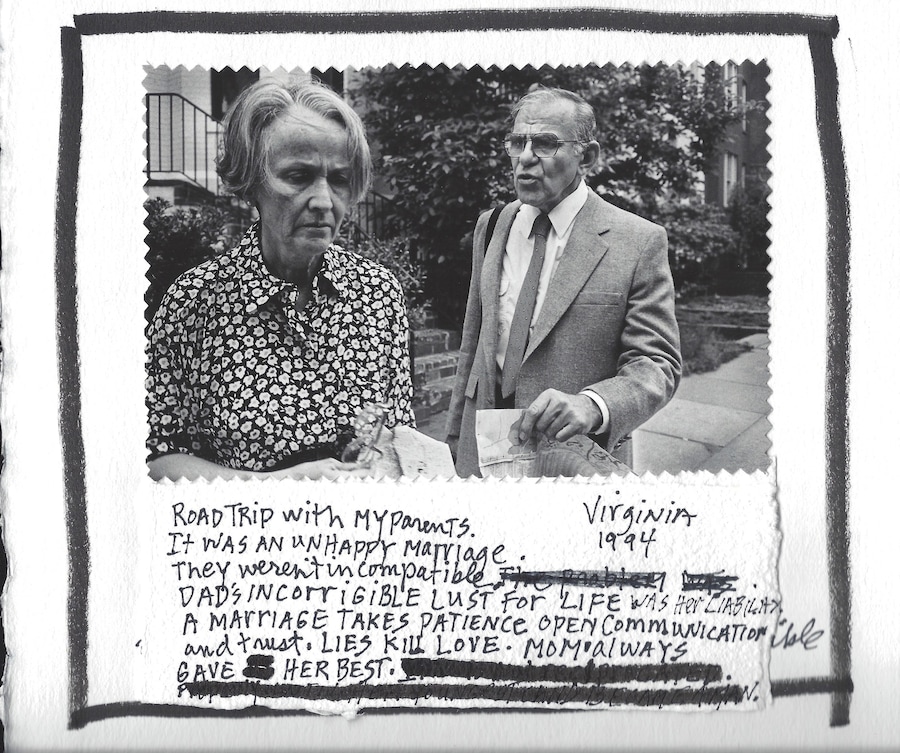 ROAD TRIP with MY Parents.
Virginia
1994
It was an unhappy Marriage.
They weren't incompatible
DAD'S INCORRIGIBLE LUST FOR LIFE WAS Her LIABILITY.
A MARRIAGE TAKES PATIENCE OPEN COMMUNICATION
and trust. LIES KILL LOVE. MOM always
GAVE HER BEST.